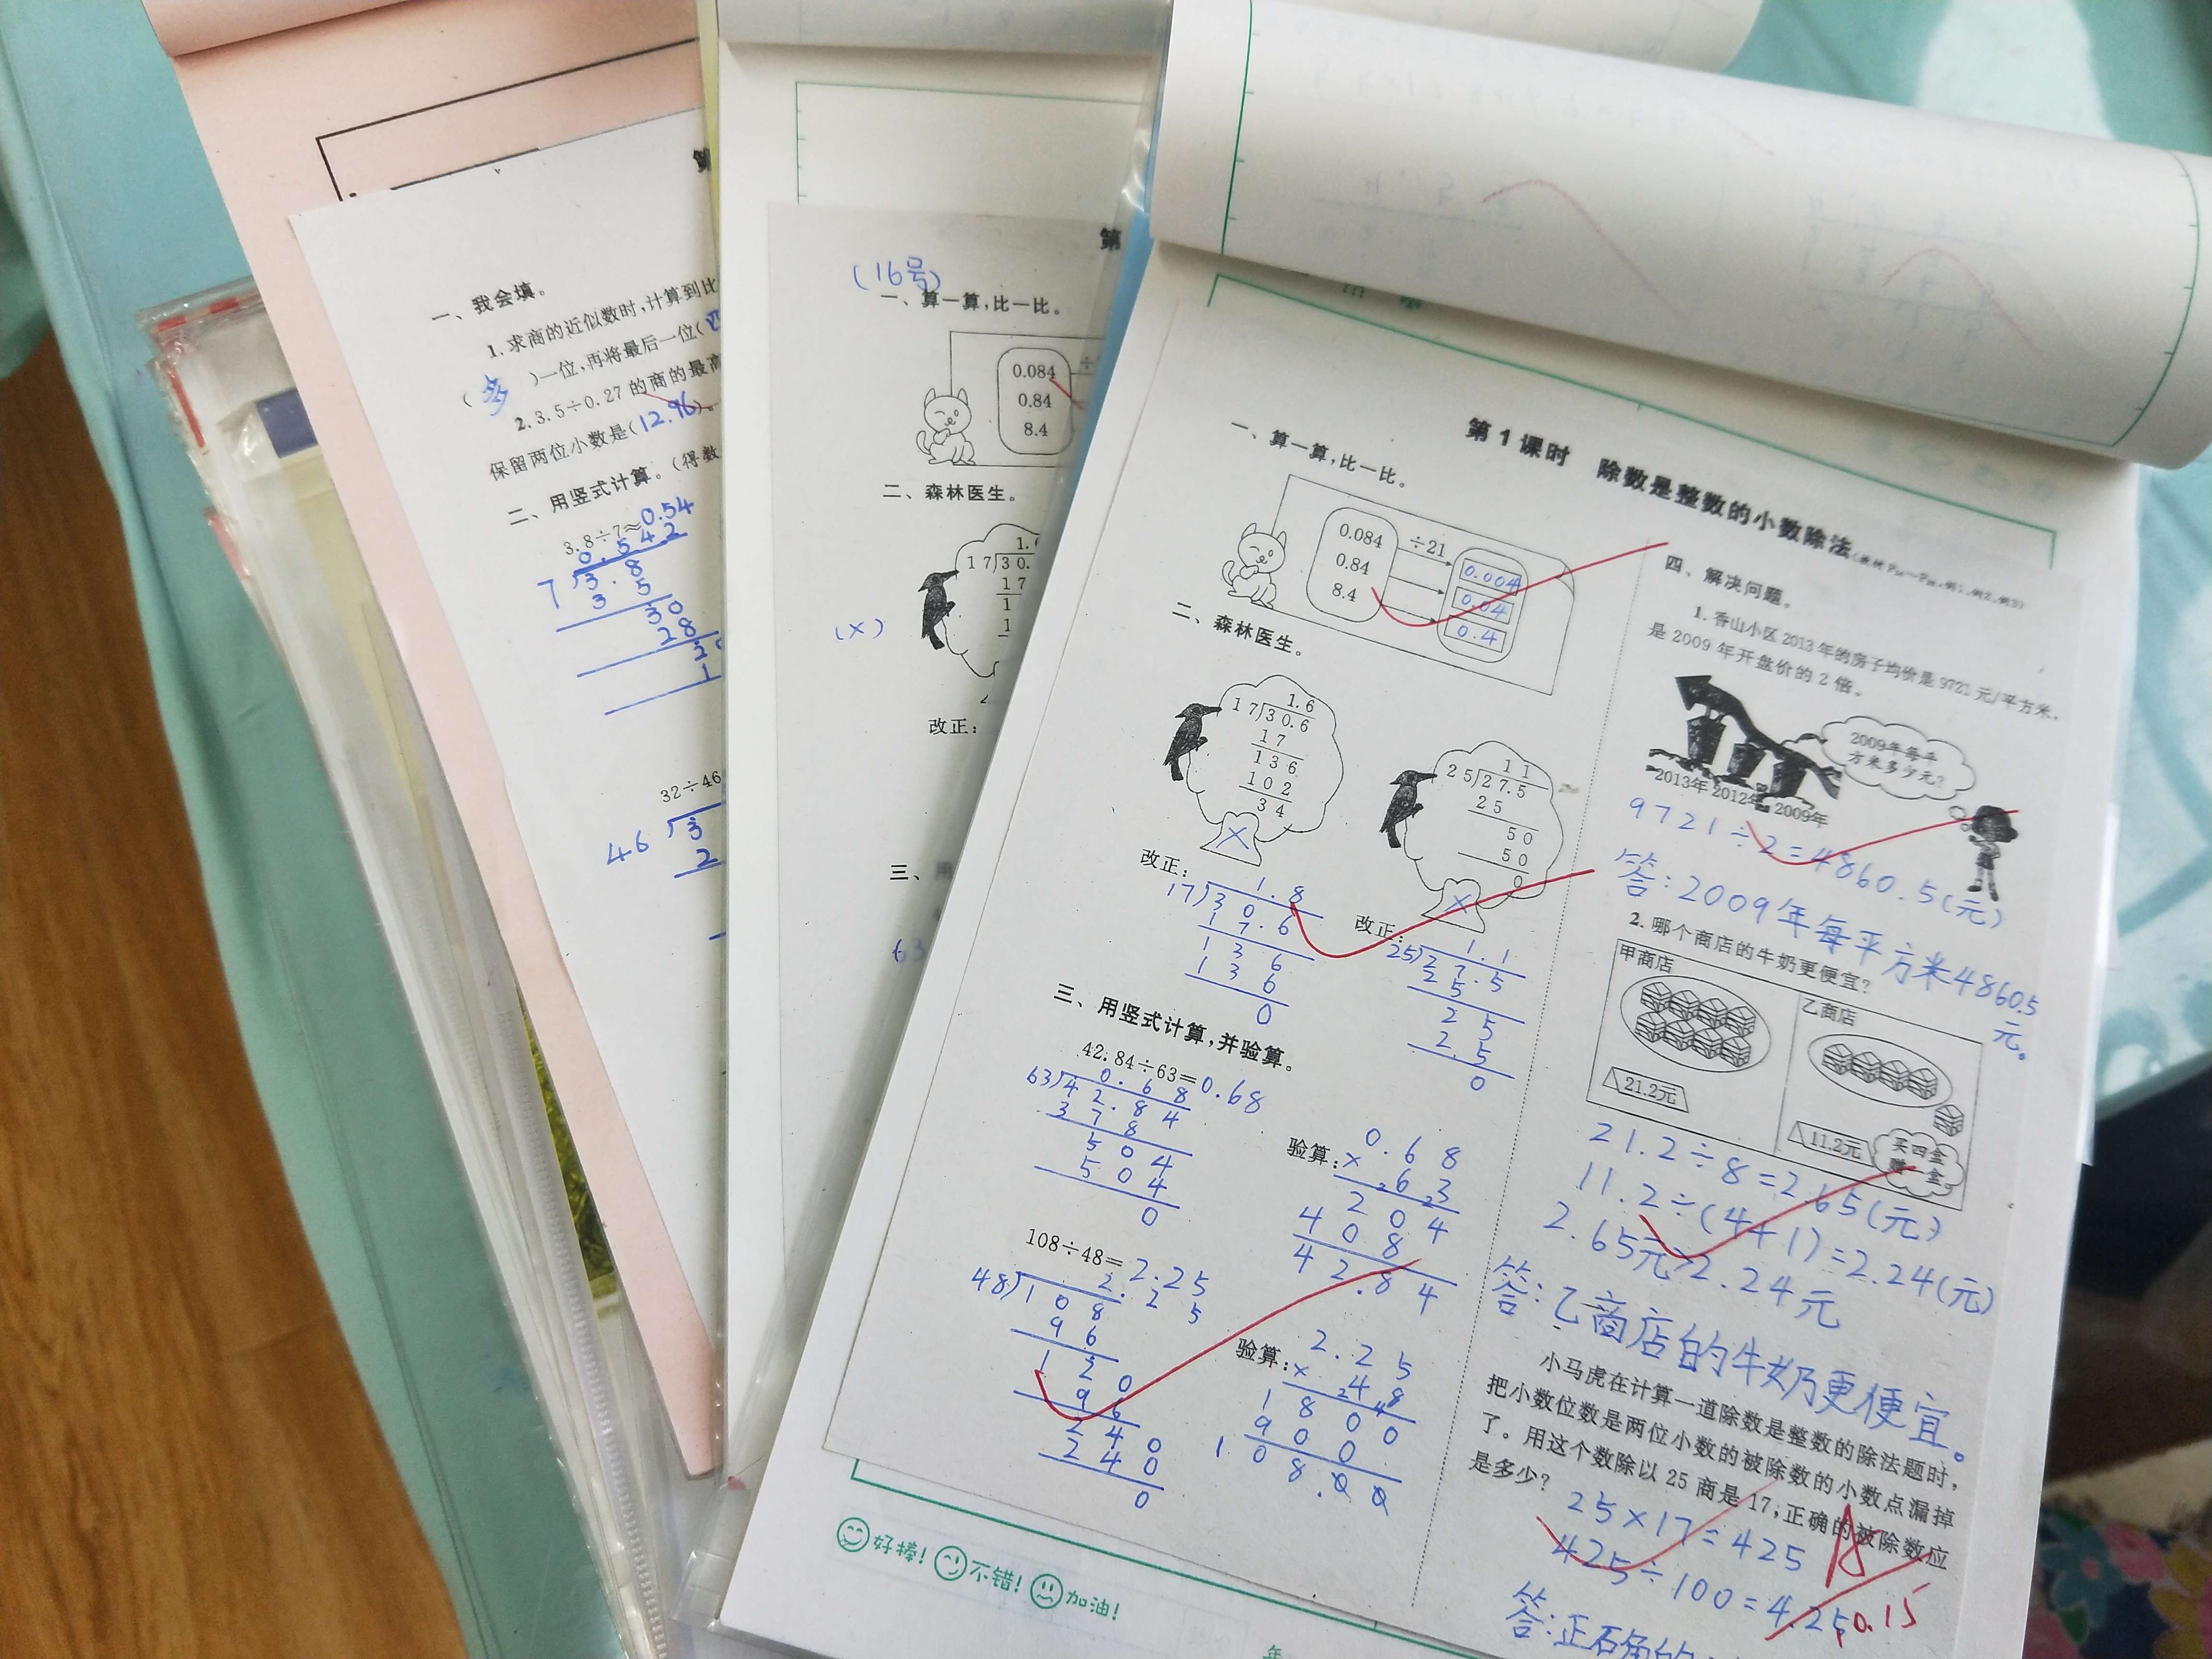 一、我会填。
1.求商的近似数时,计算到比
( 多 )一位,再将最后一位(
2.3.5÷0.27 的商的最高
保留两位小数是(12.96)。
二、用竖式计算。(得数
3.8÷7≈0.54
0.542
7 3.8
3 5
30
28
2
1
32÷46
46 3
2
第
(16号)
一、算一算,比一比。
0.084
0.84
8.4
二、森林医生。
17 30.
17
1
1
(×)
改正:
三、用
63
第1课时 除数是整数的小数除法
一、算一算,比一比。
0.084 ÷21 0.004
0.84 0.04
8.4 0.4
二、森林医生。
1.6
17 30.6
17
136
102
34
×
11
25 27.5
25
50
50
0
×
改正:
1.8
17 30.6
17.6
136
136
0
改正:
1.1
25 27.5
25
25
2.5
0
三、用竖式计算,并验算。
42.84÷63=0.68
0.68
63 42.84
37 8
504
504
0
验算:
0.68
×63
204
408
42.84
108÷48=2.25
2.25
48 108
96
120
96
240
240
0
验算:
2.25
×48
1800
900
108.00
四、解决问题。
1.香山小区2013年的房子均价是9721元/平方米,
是2009年开盘价的2倍。
2009年每平
方米多少元?
2013年 2012年 2009年
9721÷2=4860.5(元)
答:2009年每平方米4860.5
元。
2.哪个商店的牛奶更便宜?
甲商店
乙商店
21.2元
11.2元
买四盒
赠一盒
21.2÷8=2.65(元)
11.2÷(4+1)=2.24(元)
2.65元>2.24元
答:乙商店的牛奶更便宜。
小马虎在计算一道除数是整数的除法题时,
把小数位数是两位小数的被除数的小数点漏掉
了。用这个数除以25商是17;正确的被除数应
是多少?
25×17=425
425÷100=4.25
答:正确的
0.15
好棒! 不错! 加油!